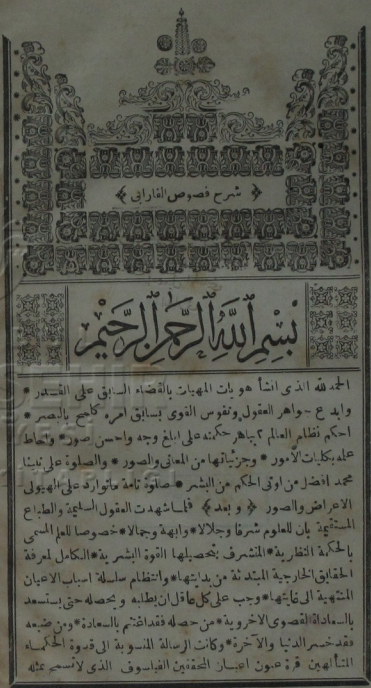 ﴿ شرح فصوص الفارابي ﴾
بسم الله الرحمن الرحيم
الحمد لله الذى انشأ هويات المهيات بالقضاء السابق على القدر *
وابدع جواهر العقول ونفوس القوى بسابق امره كلمح بالبصر *
احكم نظام العالم بباهر حكمته على ابلغ وجه واحسن صور * واحاط
علمه بكليات الأمور * وجزئياتها من المعانى والصور * والصلوة على نبينا
محمد افضل من اوتى الحكم من البشر * صلوة تامة ماتوارد على الهيولى
الاعراض والصور ﴿ وبعد ﴾ فلما شهدت العقول السليمة والطباع
المستقيمة بان للعلوم شرفا وجلالا * وابهة وجمالا * خصوصا للعلم المسمى
بالحكمة النظرية * المتشرف بتحصيلها القوة البشرية * الكامل لمعرفة
الحقايق الخارجية المبتدئة من بدايتها * وانتظام سلسلة اسباب الاعيان
المنتهية الى غايتها * وجب على كل عاقل ان يطلبه ويحصله حتى يستسعد
بالسعادة القصوى الاخروية * من حصله فقد اغتنم بالسعادة * ومن ضيعه
فقد خسر الدنيا والآخرة * وكانت الرسالة المنسوبة الى قدوة الحكماء
المتألهين قرة عيون اعيان المحققين الفيلسوف الذى لا تسمح بمثله